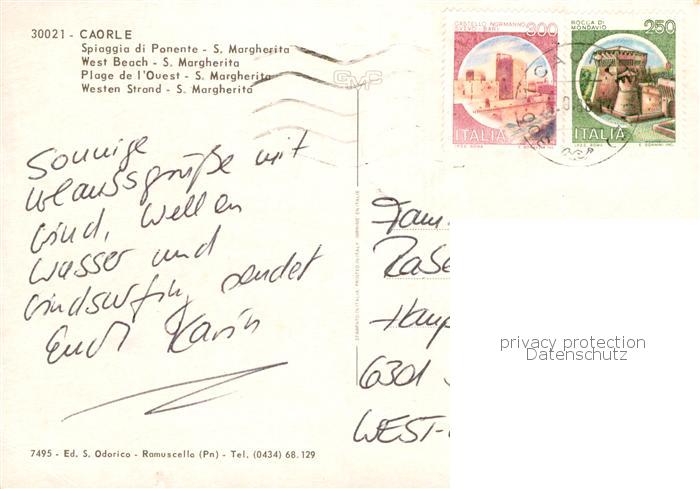 30021 - CAORLE
Spiaggia di Ponente - S. Margherita
West Beach - S. Margherita
Plage de l'Ouest - S. Margherita
Westen Strand - S. Margherita
GMC
CASTELLO NORMANNO
SVEVO - BARI
300
ITALIA
ROCCA DI
MONDAVIO
250
ITALIA
Sonnige
Urlaubsgrüße mit
Wind, Wellen
Wasser und
Windsurfing sendet
Euch Karin
STAMPATO IN ITALIA PRINTED IN ITALY IMPRIMÉ EN ITALIE
Fam
Rase
Haup
6301
WEST-
privacy protection
Datenschutz
7495 - Ed. S. Odorico - Ramuscello (Pn) - Tel. (0434) 68.129